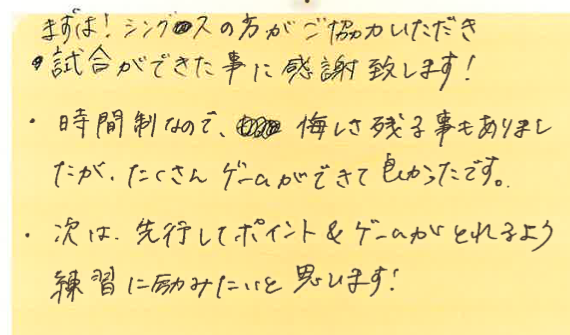 まずは！シングルスの方がご協力いただき
・試合ができた事に感謝致します！
・時間制なので、悔しさ残る事もありまし
たが、たくさんゲームができて良かったです。
・次は、先行してポイント&ゲームがとれるよう
練習に励みたいと思います！